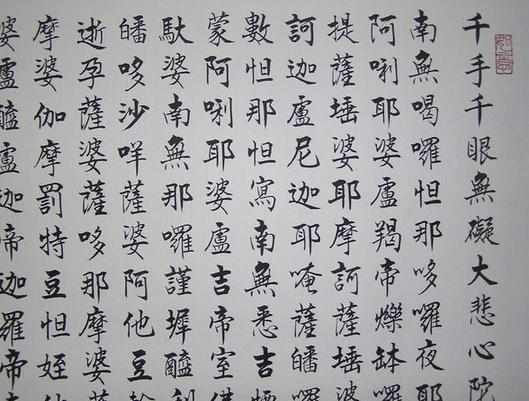 千手千眼無礙大悲心
南無喝囉怛那哆囉夜耶
阿唎耶婆盧羯帝爍缽囉
提薩埵婆耶摩訶薩埵婆
訶迦盧尼迦耶唵薩皤囉
數怛那怛寫南無悉吉
蒙阿唎耶婆盧吉帝室
馱婆南無那囉謹墀醯利
皤哆沙咩薩婆阿他豆
逝孕薩婆薩哆那摩婆
摩婆伽摩罰特豆怛姪
婆盧醯盧迦帝迦羅帝